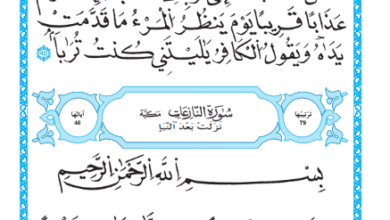 عَذَابًا قَرِيبًا يَوْمَ يَنظُرُ الْمَرْءُ مَا قَدَّمَتْ
يَدَاهُ وَيَقُولُ الْكَافِرُ يَلَيْتَنِي كُنتُ تُرَابًا ٤٠
ترتيبها 79 سُورَةُ النَّازِعَاتِ مَكِّيَّة آياتها 46
نَزَلَتْ بَعْدَ النَّبَإِ
بِسْمِ اللَّهِ الرَّحْمَٰنِ الرَّحِيمِ